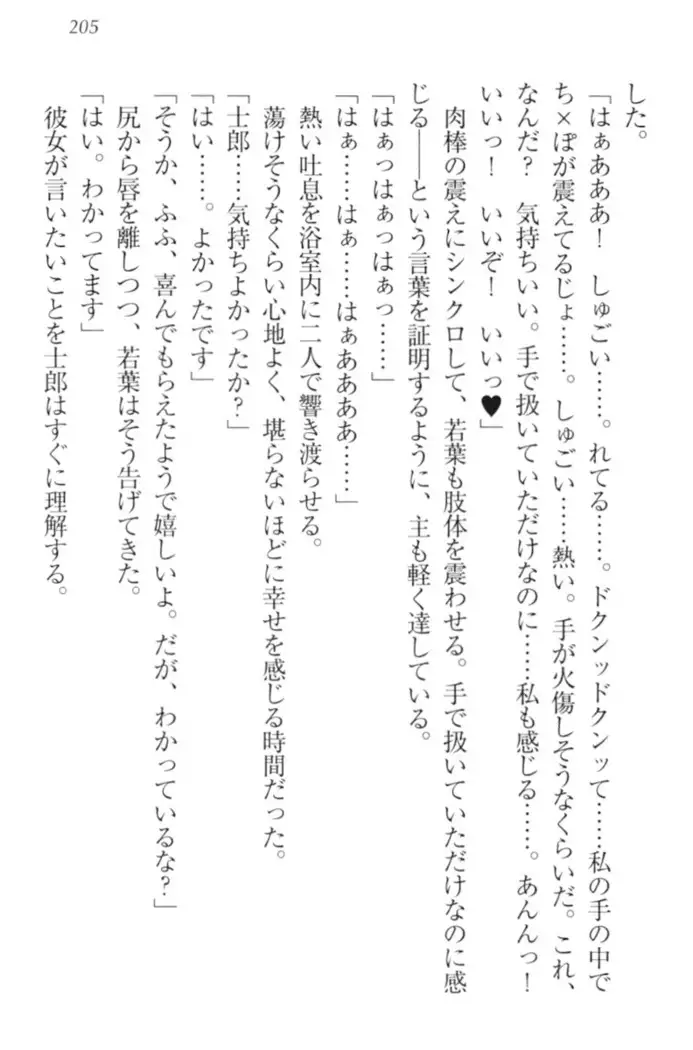 205
した。
「はぁあああ！　しゅごい……。れてる……。ドクンッドクンッて……私の手の中で
ち×ぽが震えてるじょ……。しゅごい……熱い。手が火傷しそうなくらいだ。これ、
なんだ？　気持ちいい。手で扱いていただけなのに……私も感じる……。あんんっ！
いいっ！　いいぞ！　いいっ♥」
肉棒の震えにシンクロして、若葉も肢体を震わせる。手で扱いていただけなのに感
じる――という言葉を証明するように、主も軽く達している。
「はぁっはぁっはぁっ……」
「はぁ……はぁ……はぁああああ……」
熱い吐息を浴室内に二人で響き渡らせる。
蕩けそうなくらい心地よく、堪らないほどに幸せを感じる時間だった。
「士郎……気持ちよかったか？」
「はい……。よかったです」
「そうか、ふふ、喜んでもらえたようで嬉しいよ。だが、わかっているな？」
尻から唇を離しつつ、若葉はそう告げてきた。
「はい。わかってます」
彼女が言いたいことを士郎はすぐに理解する。